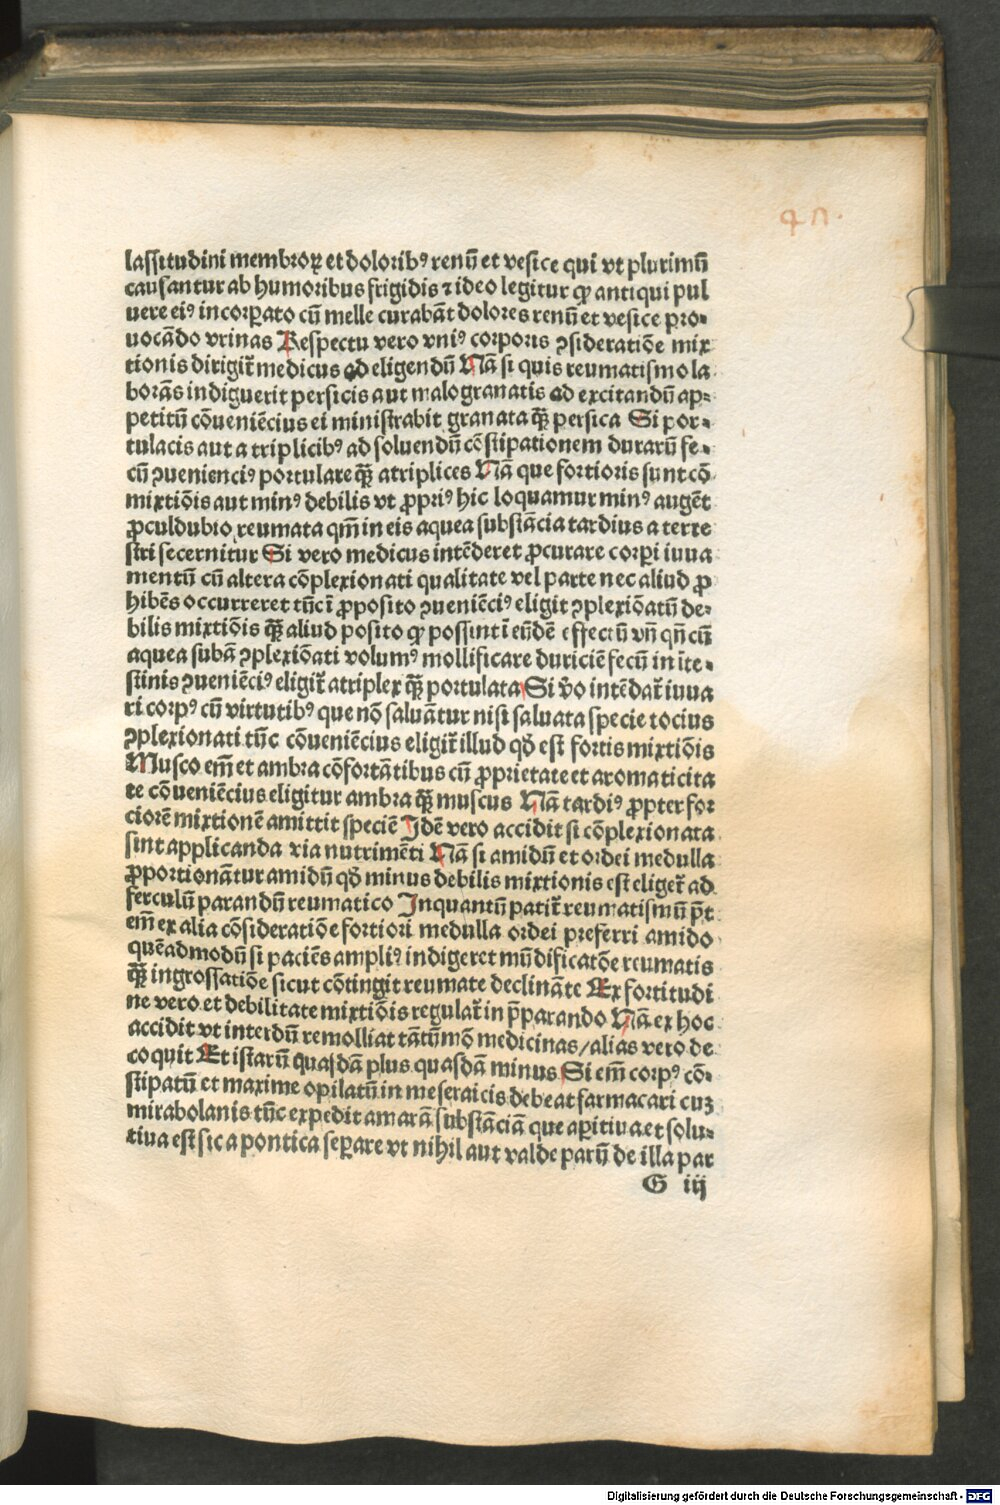 47.
lassitudini membroꝝ et doloribꝰ renū et vesice qui vt plurimū
causantur ab humoribus frigidis ⁊ ideo legitur ꝙ antiqui pul
uere eiꝰ incorꝑato cū melle curabāt dolores renū et vesice pro-
uocādo vrinas Respectu vero vniꝰ corporis ꝯsideratiōe mix
tionis dirigit̄ medicus ad eligendū Nā si quis reumatismo la
borās indiguerit persicis aut malogranatis ad excitandū ap-
petitū cōueniēcius ei ministrabit granata q̄ꝫ persica Si por-
tulacis aut a triplicibꝰ ad soluendū cōstipationem durarū fe-
cū ꝯuenienciꝰ portulare q̄ꝫ atriplices Nā que fortioris sunt cō
mixtiōis aut minꝰ debilis vt ꝓpriꝰ hic loquamur minꝰ augēt
ꝓculdubio reumata qm̄ in eis aquea substācia tardius a terre
stri secernitur Si vero medicus intēderet ꝓcurare corꝑi iuua
mentū cū altera cōplexionati qualitate vel parte nec aliud ꝓ
hibēs occurreret tūc ī ꝓposito ꝯueniēciꝰ eligit ꝯplexiōatū de-
bilis mixtiōis q̄ꝫ aliud posito ꝙ possint ī eūdē effectū vn̄ qn̄ cū
aquea subā ꝯplexiōati volumꝰ mollificare duriciē fecū in īte-
stinis ꝯueniēciꝰ eligit̄ atriplex q̄ꝫ portulata Si v̄o intēdat̄ iuua
ri corpꝰ cū virtutibꝰ que nō saluātur nisi saluata specie tocius
ꝯplexionati tūc cōueniēcius eligit̄ illud qd̄ est fortis mixtiōis
Musco em̄ et ambra cōfortātibus cū ꝓprietate et aromaticita
te cōueniēcius eligitur ambra q̄ꝫ muscus Nā tardiꝰ ꝓpter for
ciorē mixtionē amittit speciē Idē vero accidit si cōplexionata
sint applicanda via nutrimēti Nā si amidū et ordei medulla
ꝓportionātur amidū qd̄ minus debilis mixtionis est eliget̄ ad
ferculū parandū reumatico Inquantū patit̄ reumatismū p̄t
em̄ ex alia cōsideratiōe fortiori medulla ordei preferri amido
quēadmodū si paciēs ampliꝰ indigeret mūdificatōe reumatis
q̄ꝫ ingrossatiōe sicut cōtingit reumate declināte Ex fortitudi
ne vero et debilitate mixtiōis regulat̄ in p̄parando Nā ex hoc
accidit vt interdū remolliat tātūmō medicinas/alias vero de
coquit Et istarū quasdā plus quasdā minus Si em̄ corpꝰ cō-
stipatū et maxime opilatū in meseraicis debeat farmacari cuꝫ
mirabolanis tūc expedit amarā substāciā que aꝑitiua et solu-
tiua est sic a pontica seꝑare vt nihil aut valde parū de illa par
G iij
Digitalisierung gefördert durch die Deutsche Forschungsgemeinschaft - DFG